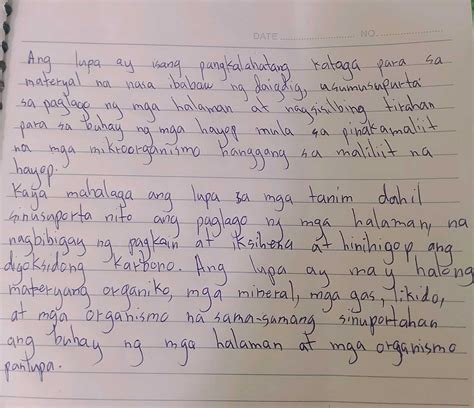 DATE NO.
Ang lupa ay isang pangkalahatang kataga para sa
materyal na nasa ibabaw ng daigdig, usumusuporta
sa paglago ng mga halaman at nagsisilbing tirahan
para sa buhay ng mga hayop mula sa pinakamaliit
na mga mikroorganismo hanggang sa maliliit na
hayop.
Kaya mahalaga ang lupa sa mga tanim dahil
sinusuporta nito ang paglago ng mga halaman, na
nagbibigay ng pagkain at iksihena at hinihigop ang
diyoksidong karbono. Ang lupa ay may halong
materyang organiko, mga mineral, mga gas, likido,
at mga organismo na sama-samang sinuportahan
ang buhay ng mga halaman at mga organismo
panlupa.